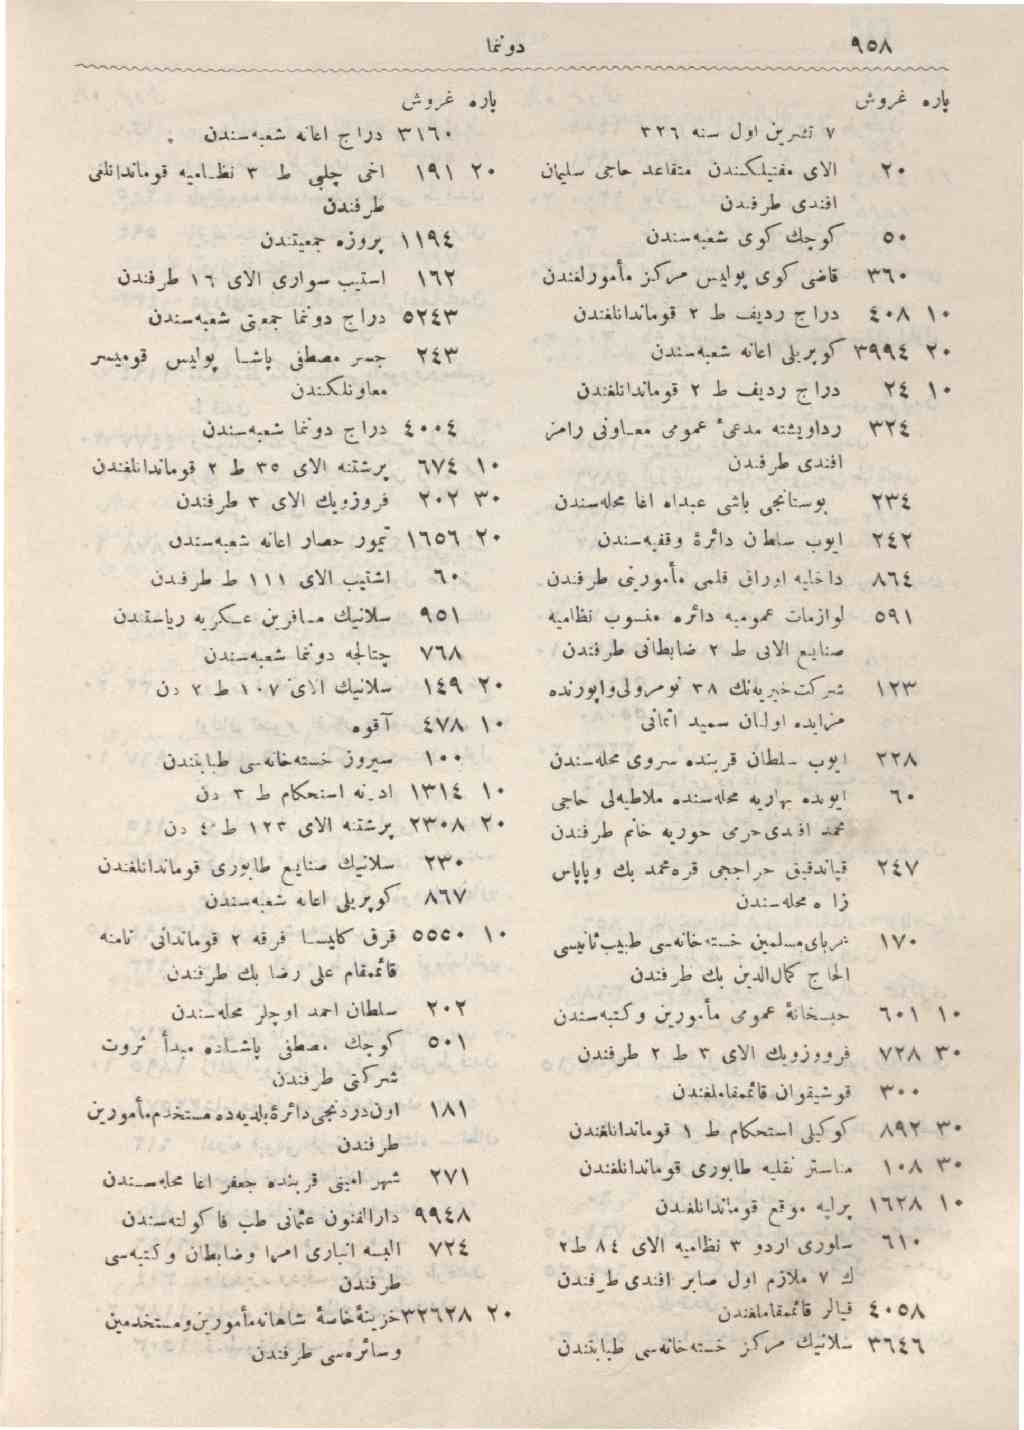 ٩٥٨
دونما
پاره غروش
٧ تشرین اول سنه ٣٢٦
٢٠ الای مفتیلكندن متقاعد حاجی سلیمان
افندی طرفندن
٥٠ كوچك كوی شعبه‌سندن
٣٦٠ قاضی كوی پولیس مركز مأمورلغندن
١٠ ٤٠٨ دراج ردیف ط ٢ قوماندانلغندن
٢٠ ٣٩٩٤ كوپریلی اعانه شعبه‌سندن
١٠ ٢٤ دراج ردیف ط ٢ قوماندانلغندن
٣٢٤ رداویشته مدعیٔ عمومی معاونی رامز
افندی طرفندن
٢٣٤ بوستانجی باشی عبداه اغا محله‌سندن
٢٤٢ ایوب سلطان دائرۀ وقفیه‌سندن
٨٦٤ داخلیه اوراق قلمی مأمورینی طرفندن
٥٩١ لوازمات عمومیه دائره منسوب نظامیه
صنایع الایی ط ٢ ضابطانی طرفندن
١٢٣ شركت خیریه‌نك ٣٨ نومرولی واپورنده
مزایده اولنان سعید اثمانی
٣٢٨ ایوب سلطان قربنده سروی محله‌سندن
٦٠ ایوبده بهاریه محله‌سنده ملاطیه‌لی حاجی
محمد افندی حرمی حوریه خانم طرفندن
٢٤٧ قپاندقیق حراججی قره‌محمد بك وپاپاس
زاده محله‌سندن
١٧٠ غربای مسلمین خسته‌خانه‌سی طبیب ثانیسی
الحاج كمال‌الدین بك طرفندن
١٠ ٦٠١ حبسخانۀ عمومی مأمورین وكتبه‌سندن
٣٠ ٧٢٨ فرووزویك الای ٣ ط ٢ طرفندن
٣٠٠ قوشیقوان قائممقاملغندن
٣٠ ٨٩٢ كوكیلی استحكام ط ١ قوماندانلغندن
٣٠ ١٠٨ مناستر نقلیه طابوری قوماندانلغندن
١٠ ١٦٢٨ پرلپه موقع قوماندانلغندن
٦١٠ سلوری اردو ٣ نظامیه الای ٨٤ ط٢
ك ٧ ملازم اول صابر افندی طرفندن
٤٠٥٨ قیالر قائممقاملغندن
٣٦٤٦ سلانیك مركز خسته‌خانه‌سی طبابتندن
پاره غروش
٣١٦٠ دراج اعانه شعبه‌سندن
٢٠ ١٩١ اخی چلبی ط ٣ نظامیه قوماندانلغی
طرفندن
١١٩٤ پروزه جمعیتندن
١٦٢ استیب سواری الای ١٦ طرفندن
٥٢٤٣ دراج دونما جمعیتی شعبه‌سندن
٢٤٣ جسر مصطفی پاشا پولیس قومیسر
معاونلكندن
٤٠٠٤ دراج دونما شعبه‌سندن
١٠ ٦٧٤ پرشتنه الای ٣٥ ط ٢ قوماندانلغندن
٣٠ ٢٠٢ فروزویك الای ٣ طرفندن
٢٠ ١٦٥٦ تیمور حصار اعانه شعبه‌سندن
٦٠ اشتیب الای ١١١ ط طرفندن
٩٥١ سلانیك مسافرین عسكریه ریاستندن
٧٦٨ چتالجه دونما شعبه‌سندن
٢٠ ١٤٩ سلانیك الای ١٠٧ ط ٢ دن
١٠ ٤٧٨ آقوه
١٠٠ سیروز خسته‌خانه‌سی طبابتندن
١٠ ١٣١٤ ادرنه استحكام ط ٣ دن
٢٠ ٢٣٠٨ پرشتنه الای ١٢٣ ط ٤ دن
٢٣٠ سلانیك صنایع طابوری قوماندانلغندن
٨٦٧ كوپریلی اعانه شعبه‌سندن
١٠ ٥٥٥٠ قرق كلیسا فرقه ٢ قوماندانی نامنه
قائممقام علی رضا بك طرفندن
٢٠٢ سلطان احمد اوچلر محله‌سندن
٥٠١ كوچك مصطفی پاشاده مبدأ ثروت
شركتی طرفندن
١٨١ اون‌دردنجی دائرۀ بلدیه‌ده مستخدم مأمورین
طرفندن
٢٧١ شهر امینی قربنده جعفر اغا محله‌سندن
٩٩٤٨ دارالفنون عثمانی طب فاكولته‌سندن
٧٢٤ البسه انباری امرا وضابطان وكتبه‌سی
طرفندن
٢٠ ٣٢٦٢٨ خزینۀ خاصۀ شاهانه مأمورین ومستخدمین
وسائره‌سی طرفندن